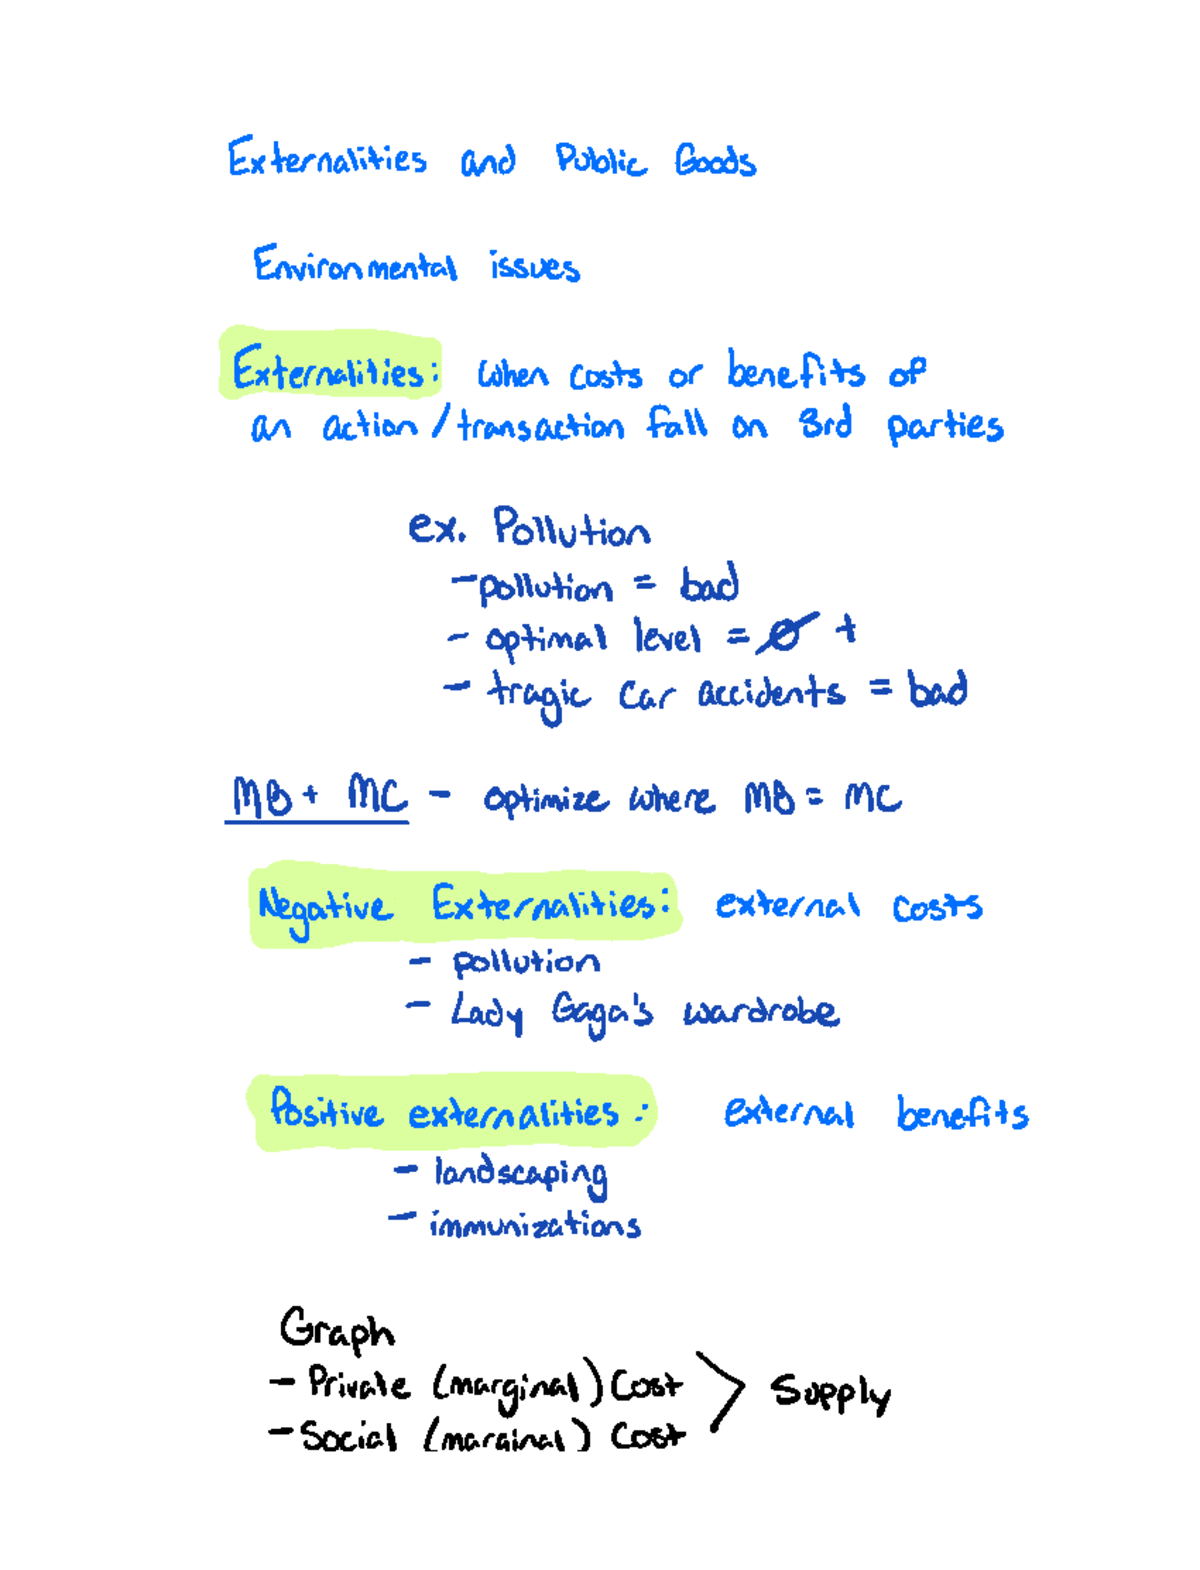 Externalities and Public Goods
Environmental issues
Externalities: when costs or benefits of
an action / transaction fall on 3rd parties
ex. Pollution
- pollution = bad
- optimal level = Ø +
- tragic car accidents = bad
MB + MC - optimize where MB = MC
Negative Externalities: external costs
- pollution
- Lady Gaga's wardrobe
Positive externalities: external benefits
- landscaping
- immunizations
Graph
- Private (marginal) Cost > Supply
- Social (marginal) Cost